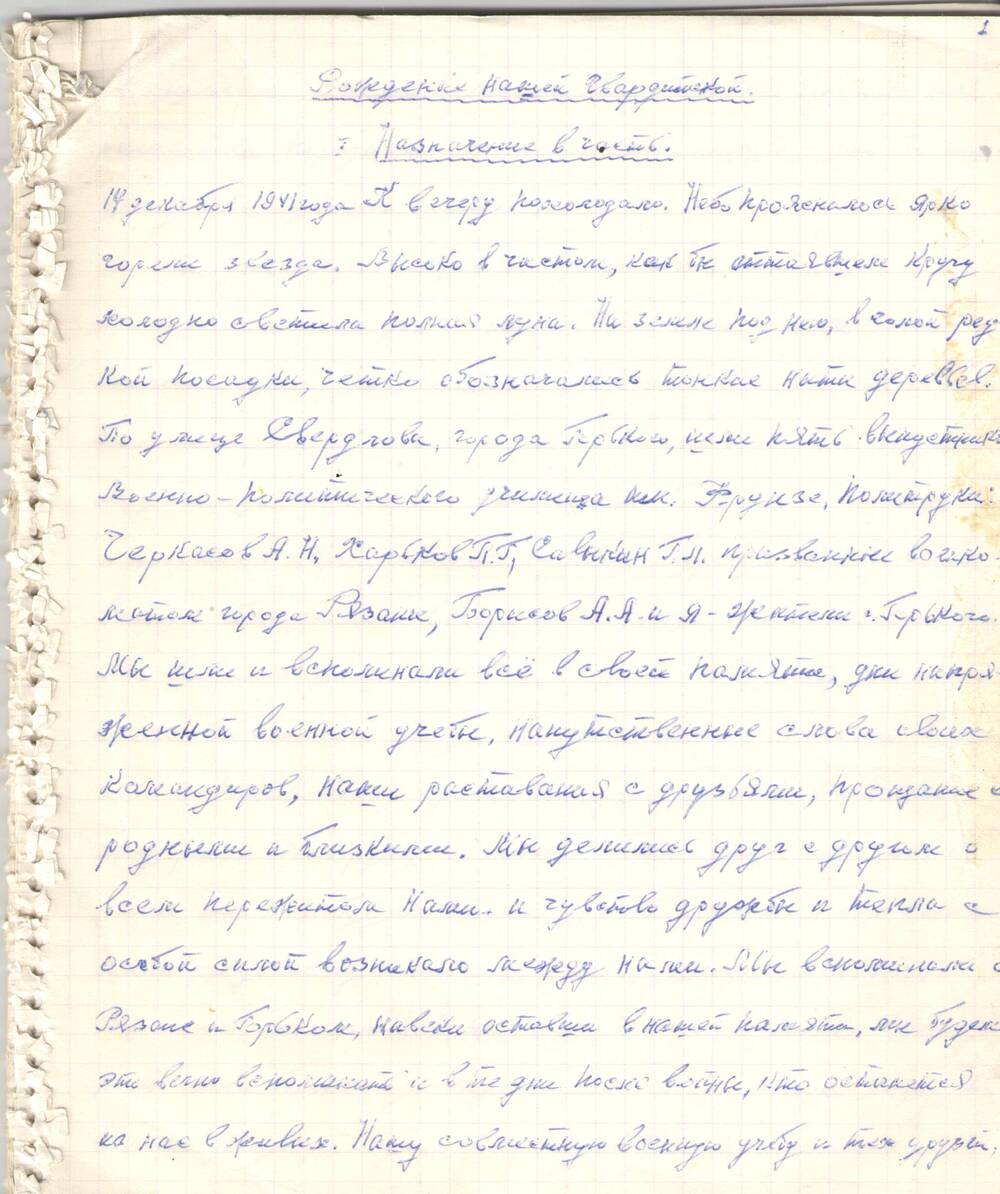 1
Рождение нашей Гвардейской.
I Назначение в часть.
14 декабря 1941 года К вечеру похолодало. Небо прояснилось Ярко
горели звезда. Высоко в чистом, как бы оттаявшем кругу
холодно светила полная луна. На земле под нею, в голой ред
кой посадки, четко обозначались тонкие нити деревьев.
По улице Свердлова, города Горького, шли пять выпускник
Военно-политического училища им. Фрунзе, политруки:
Черкасов А.Н, Харьков П.Г, Савыкин Г.П. призванные военко-
матом города Рязани, Борисов А.А. и я - жители г. Горького.
Мы шли и вспоминали всё в своей памяти, дни напря-
женной военной учебы, напутственные слова своих
командиров, наши раставания с друзьями, прощание с
родными и близкими. Мы делились друг с другом о
всем пережитом нами. и чувство дружбы и тепла с
особой силой возникало между нами. Мы вспоминали о
Рязане и Горьком, навеки оставши в нашей памяти, мы будем
эти вечно вспоминать и в те дни после войны, кто останется
из нас в живых. Нашу совместную военную учебу и тех друзей,